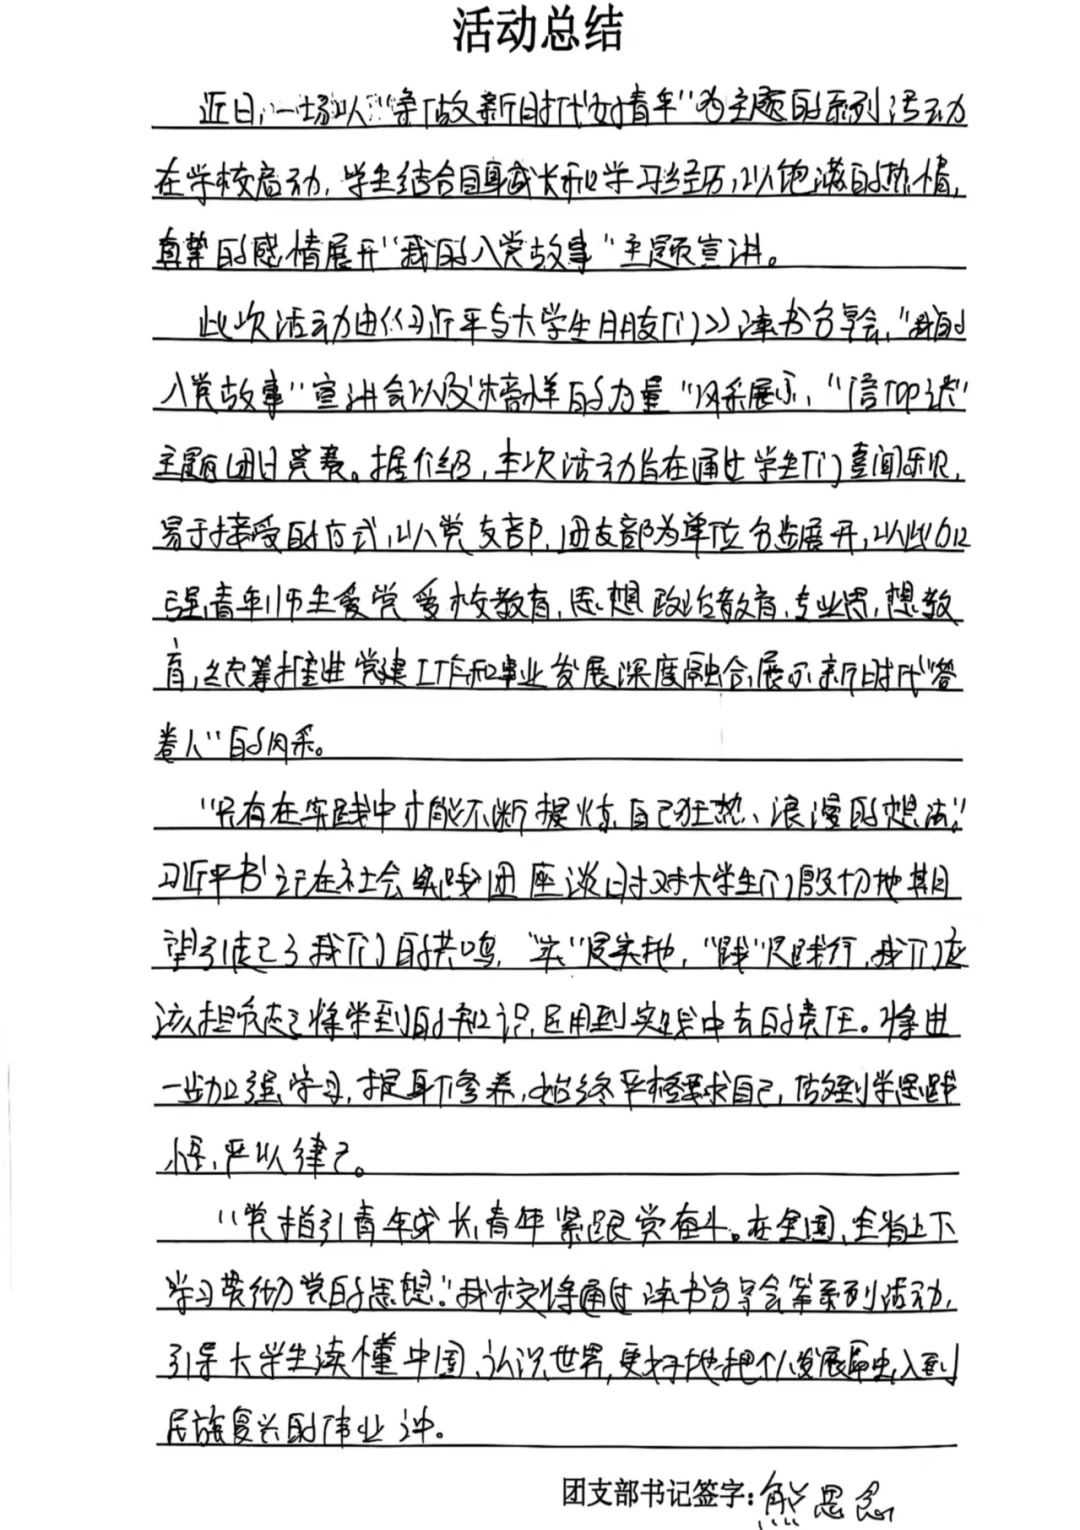 活动总结
近日,一场以“争做新时代好青年”为主题的系列活动
在学校启动,学生结合自身成长和学习经历,以饱满的热情,
真挚的感情展开“我的入党故事”主题宣讲。
此次活动由《习近平与大学生朋友们》读书分享会,“我的
入党故事”宣讲会以及“榜样的力量”风采展示、“信TOP进”
主题团日竞赛。据介绍,本次活动旨在通过学生们喜闻乐见,
易于接受的方式,以党支部,团支部为单位分步展开,以此加
强青年师生爱党爱校教育,思想政治教育,专业思,想教
育,统筹推进党建工作和事业发展深度融合,展示新时代“答
卷人”的风采。
“只有在实践中才能不断提炼自己狂热、浪漫的想法。”
习近平书记在社会实践团座谈时对大学生们殷切地期
望引起了我们的共鸣,“实”是实地,“践”是践行,我们应
该担负起了将学到的知识运用到实践中去的责任。将进
一步加强学习,提身个修养,始终严格要求自己,做到学思践
悟,严以律己。
“党指引青年成长,青年紧跟党奋斗。在全国,全省上下
学习贯彻党的思想。”我校将通过读书分享会等系列活动,
引导大学生读懂中国,认识世界,更好地把个人发展历史入到
民族复兴的伟业中。
团支部书记签字:熊思念